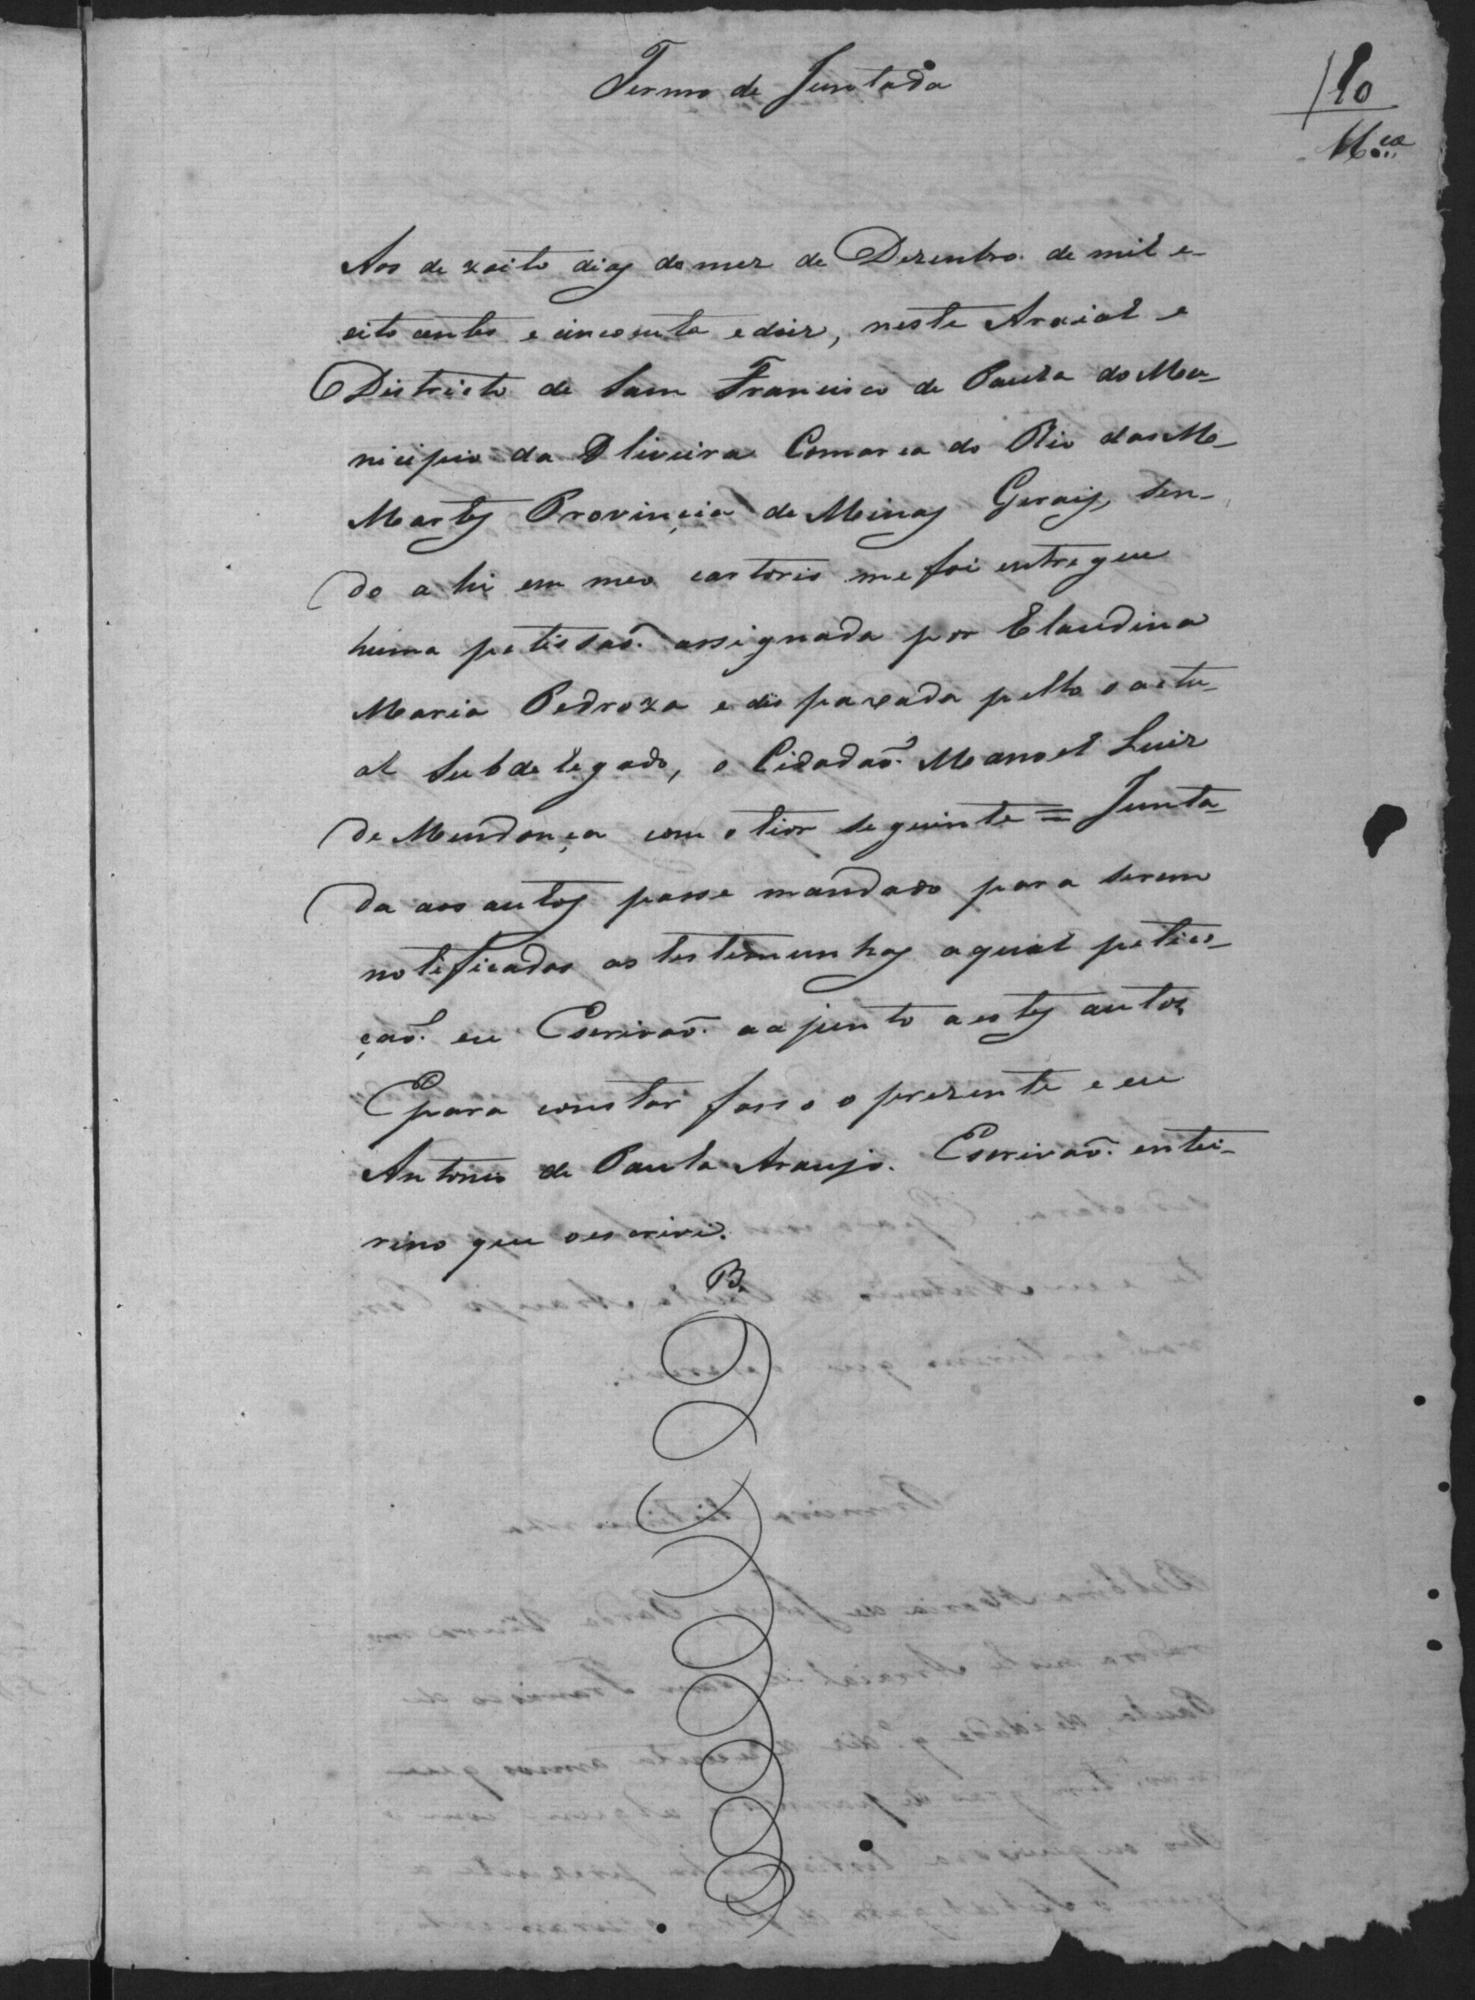 Termo de Juntada
10
M.ca
Aos de zoito dias do mez de Dezenbro de mil e
oito centos e cincoenta e doiz, neste Araial e
Districto de Sam Francisco de Paula do Mu-
nicipio da Oliveira Comarca do Rio das Mo-
Mortes Provincia de Minas Gerais, sen-
do a hi em meo cartorio me foi entregue
huma petissaõ assignada por Claudina
Maria Pedroza e dis paxada pello o actu-
al Sub de legado, o Cidadaõ Manoel Luiz
de Mendonça com o tior seguinte = Junta-
da aos autos passe mandado para serem
notificadas as testemunhas a qual petici-
çaõ eu Escrivaõ a ajunto a estes autos
E para constar fasso o prezente e eu
Antonio de Paula Araujo. Escrivaõ entei-
rino que o escrivi.